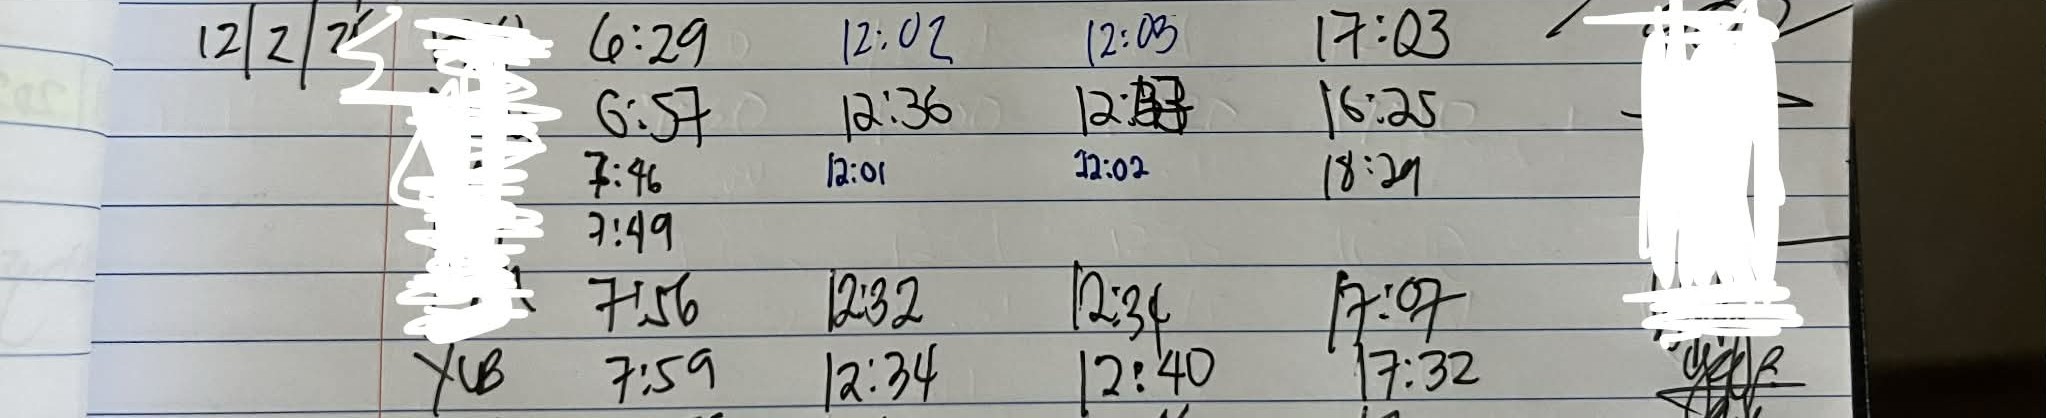 12/2/2 6:29 12:02 12:03 17:03
6:57 12:36 16:25
7:46 12:01 12:02 18:29
7:49
7:56 12:32 12:34 17:07
YUB 7:59 12:34 12:40 17:32